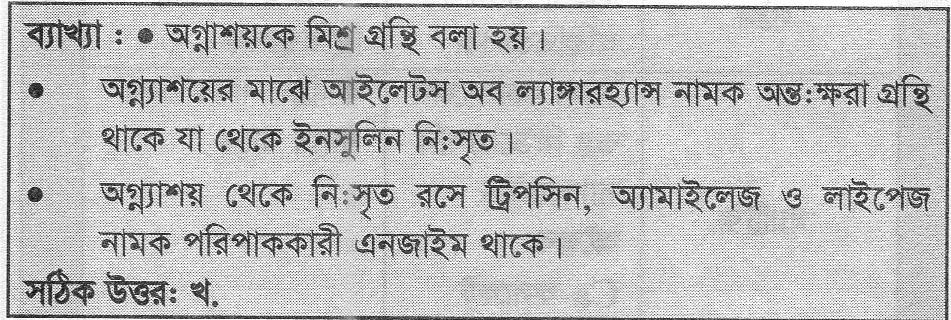 ব্যাখ্যা : ● অগ্নাশয়কে মিশ্র গ্রন্থি বলা হয়।
● অগ্ন্যাশয়ের মাঝে আইলেটস অব ল্যাঙ্গারহ্যান্স নামক অন্ত:ক্ষরা গ্রন্থি
থাকে যা থেকে ইনসুলিন নি:সৃত।
● অগ্ন্যাশয় থেকে নি:সৃত রসে ট্রিপসিন, অ্যামাইলেজ ও লাইপেজ
নামক পরিপাককারী এনজাইম থাকে।
সঠিক উত্তর: খ.